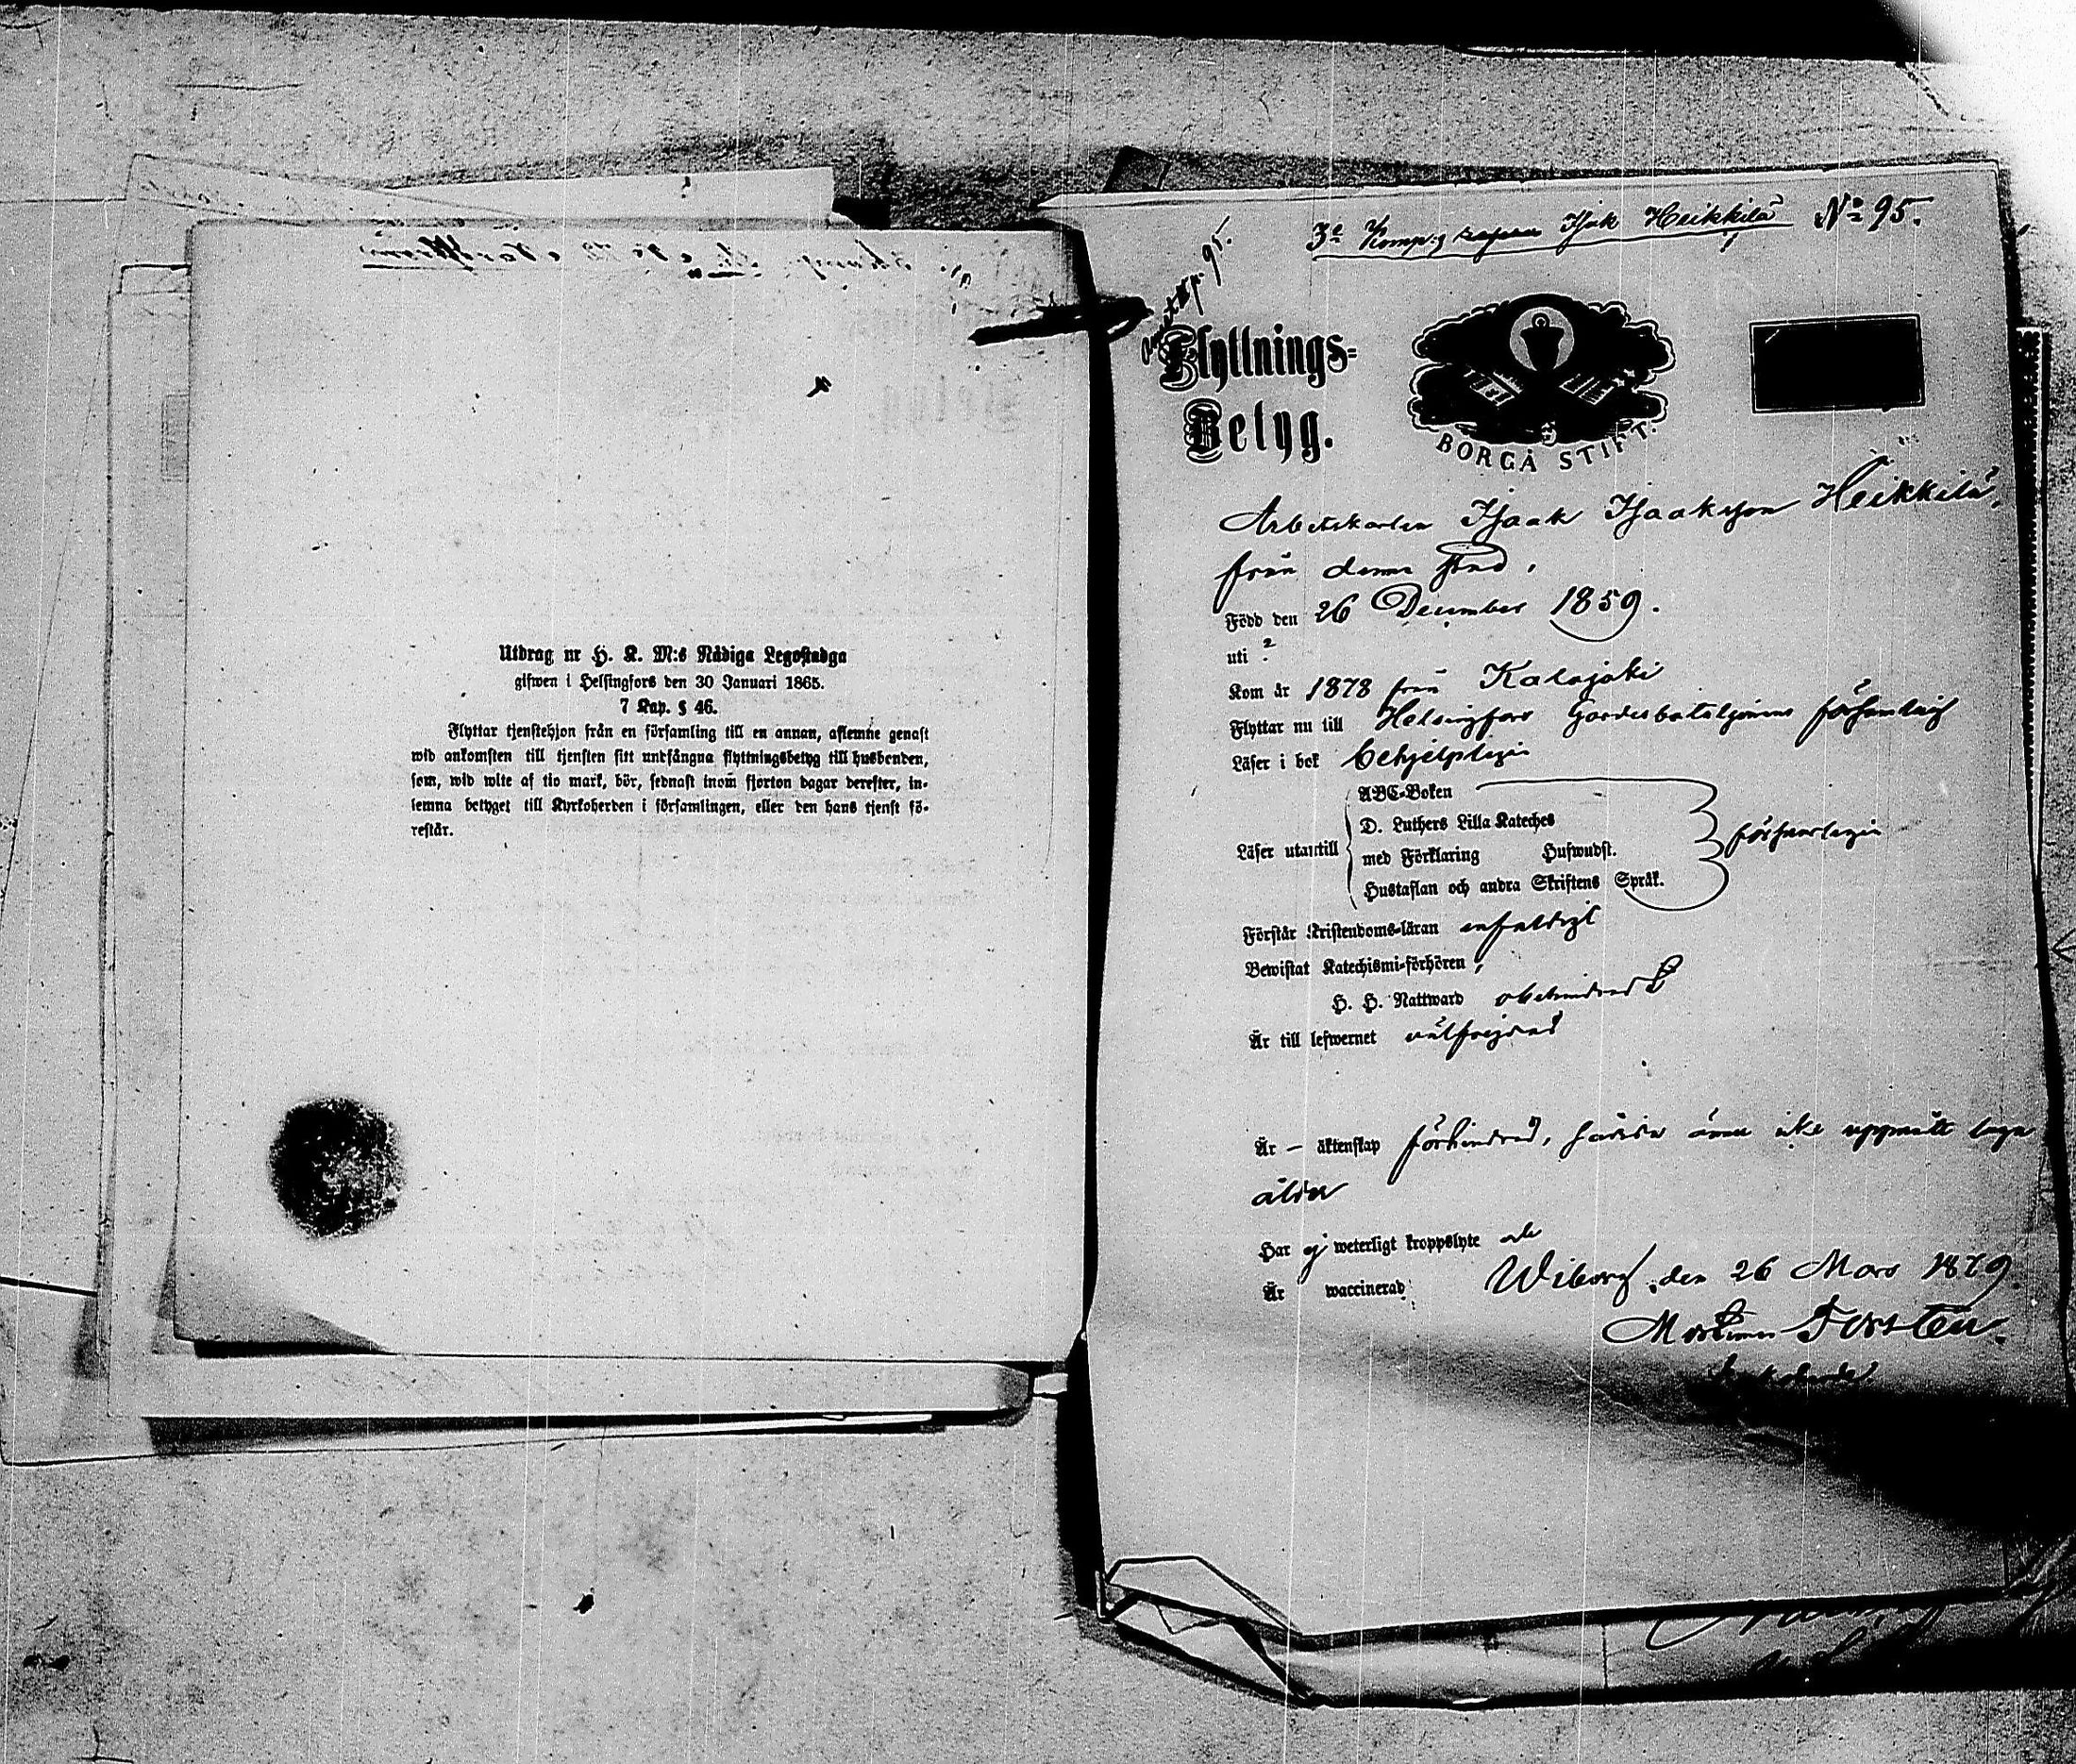 Utdrag ur H. K. M:s Nådiga Legostadga
gifwen i Helsingfors den 30 Januari 1865.
7 Kap. § 46.
Flyttar tjenstehjon från en församling till en annan, aflemne genast
wid ankomsten till tjensten sitt undfångna flyttningsbetyg till husbonden,
som, wid wite af tio mark, bör, sednast inom fjorton dagar derefter, in-
lemna betyget till Kyrkoherden i församlingen, eller den hans tjenst fö-
restår.
3e Komp:g Isak Heikkilä No 95.
95.
Flyttnings-
Betyg.
BORGÅ STIFT.
Arbetskarlen Isaak Isaaksson Heikkilä,
från denna stad,
Född den 26 December 1859.
uti ?
Kom år 1878 från Kalajoki
Flyttar nu till Helsingfors Gardesbataljonens församling
Läser i bok behjelpligen
ABC-Boken
D. Luthers Lilla Kateches
Läser utantill med Förklaring Hufwudst. försvarligen
Hustaflan och andra Skriftens Språk.
Förstår Kristendoms-läran enfaldigt
Bewistat Katechismi-förhören,
H. H. Nattward obehindrad
Är till lefwernet välfrejdad
Är – äktenskap förhindrad, såsom ännu icke uppnått laga
ålder
Har ej weterligt kroppslyte och
Är waccinerad. Wiborg den 26 Mars 1879.
Mortimer Forstén.